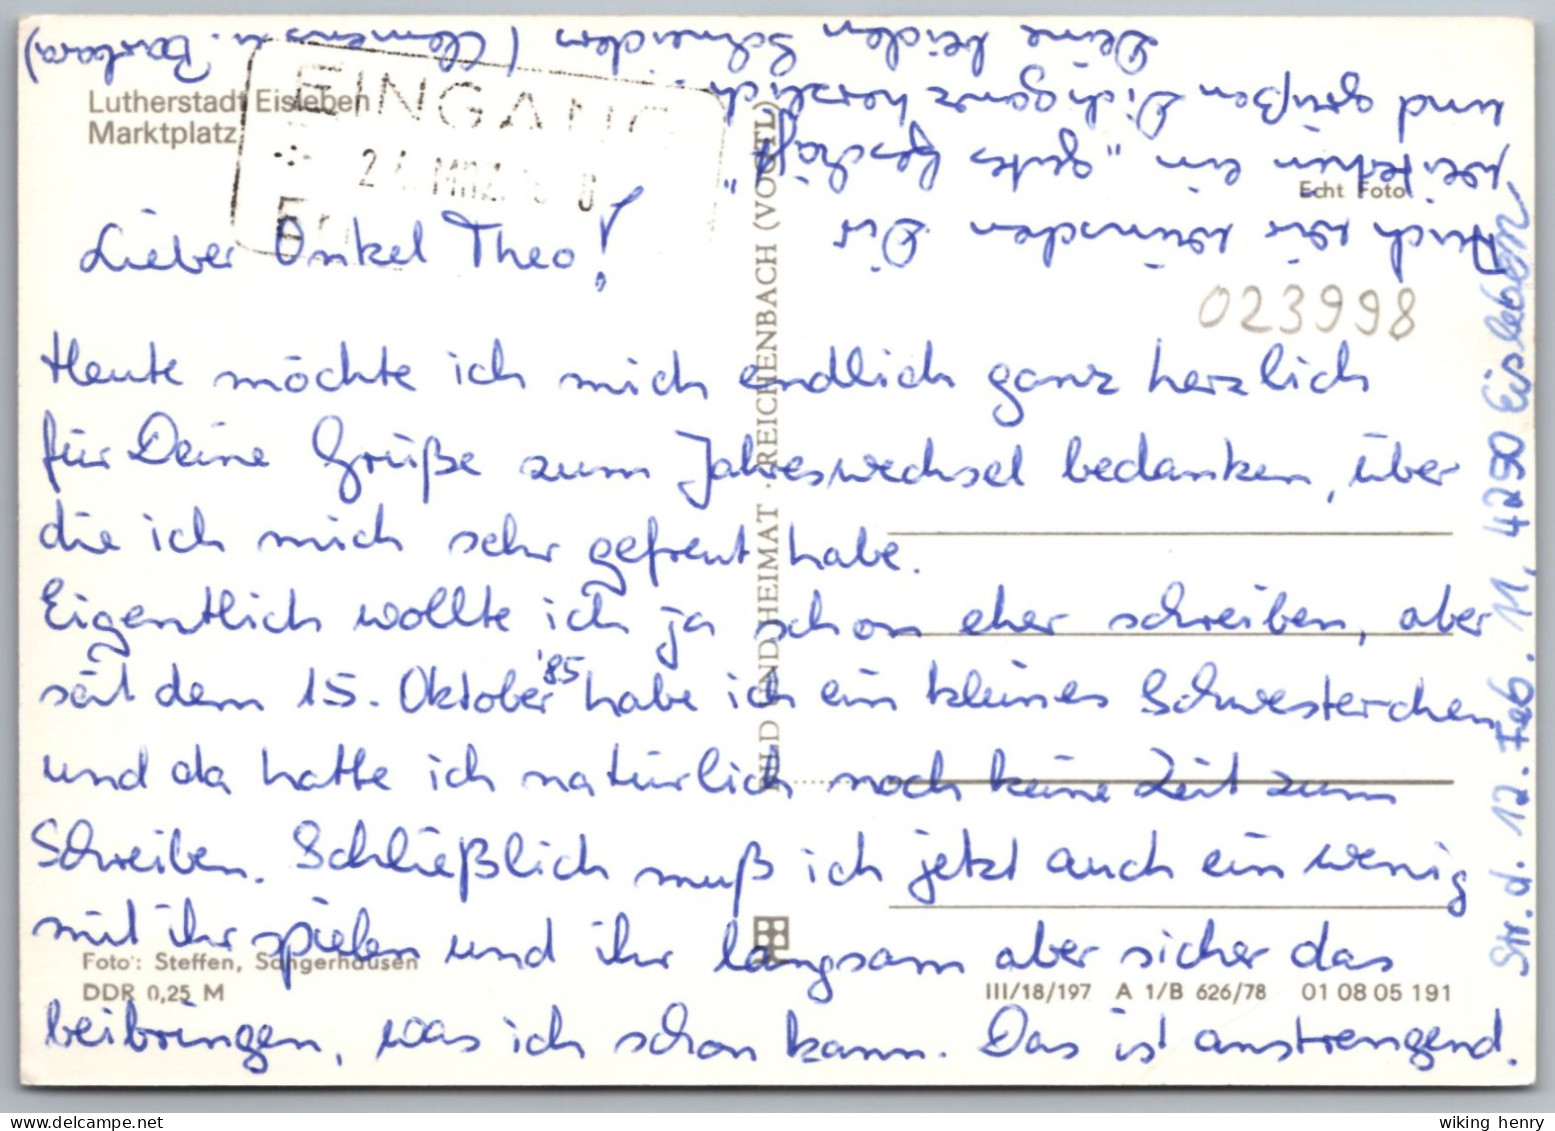 Lutherstadt Eisleben
Marktplatz
EINGANG
Echt Foto
023998
Lieber Onkel Theo!
Heute möchte ich mich endlich ganz herzlich
für Deine Grüße zum Jahreswechsel bedanken, über
die ich mich sehr gefreut habe.
Eigentlich wollte ich ja schon eher schreiben, aber
seit dem 15. Oktober '85 habe ich ein kleines Schwesterchen
und da hatte ich natürlich noch keine Zeit zum
Schreiben. Schließlich muß ich jetzt auch ein wenig
mit ihr spielen und ihr langsam aber sicher das
beibringen, was ich schon kann. Das ist anstrengend.
Auch wir wünschen Dir
weiterhin ein „gutes Geschäft"
und grüßen Dich ganz herzlich
Deine beiden Schneiders (Clemens u. Barbara)
Str. d. 12. Feb. 11, 4250 Eisleben
BILD UND HEIMAT · REICHENBACH (VOGTL)
Foto: Steffen, Sangerhausen
DDR 0,25 M
III/18/197 A 1/B 626/78 01 08 05 191
wiking henry